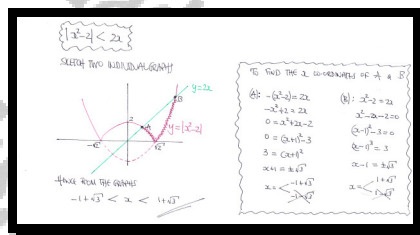 |x²-2| < 2x
SKETCH TWO INDIVIDUAL GRAPHS
y=2x
B
2
A
y=|x²-2|
-√2
√2
HENCE FROM THE GRAPHS
-1+√3 < x < 1+√3
TO FIND THE x CO-ORDINATES OF A & B
(A): -(x²-2)=2x
-x²+2=2x
0=x²+2x-2
0=(x+1)²-3
3=(x+1)²
x+1=±√3
x=< -1+√3
-1-√3
(B): x²-2=2x
x²-2x-2=0
(x-1)²-3=0
(x-1)²=3
x-1=±√3
x=< 1+√3
1-√3